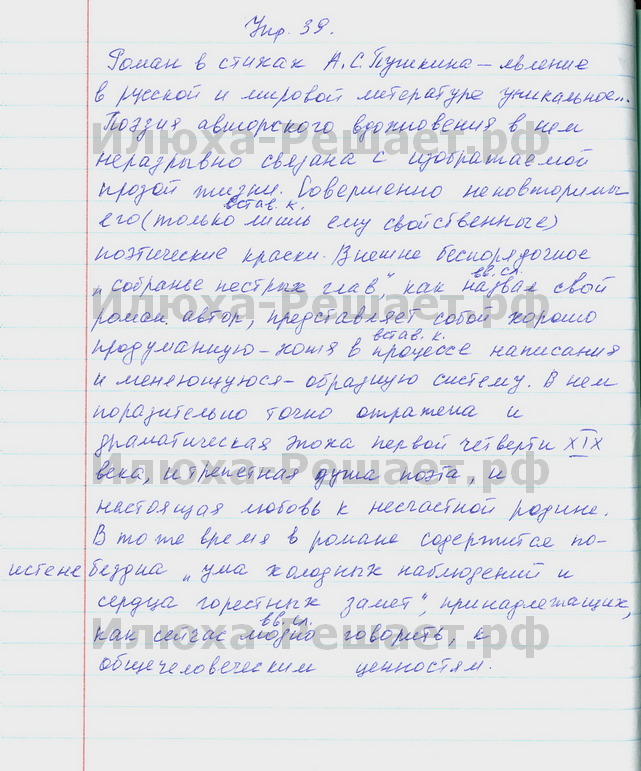 Упр. 39.
Роман в стихах А.С. Пушкина – явление
в русской и мировой литературе уникальное...
Поэзия авторского вдохновения в нем
Илюха-Решает.рф
неразрывно связана с изображаемой
прозой жизни. Совершенно неповторимы
встав. к.
его (только лишь ему свойственные)
поэтические краски. Внешне беспорядочное
вв. сл.
„собранье пестрых глав", как назвал свой
Илюха-Решает.рф
роман автор, представляет собой хорошо
встав. к.
продуманную – хотя в процессе написания
и меняющуюся – образную систему. В нем
поразительно точно отражена и
драматическая эпоха первой четверти XIX
Илюха-Решает.рф
века, и трепетная душа поэта, и
настоящая любовь к несчастной родине.
В то же время в романе содержится по-
истене бездна „ума холодных наблюдений и
сердца горестных замет", принадлежащих,
вв. сл.
Илюха-Решает.рф
как сейчас модно говорить, к
общечеловеческим ценностям.